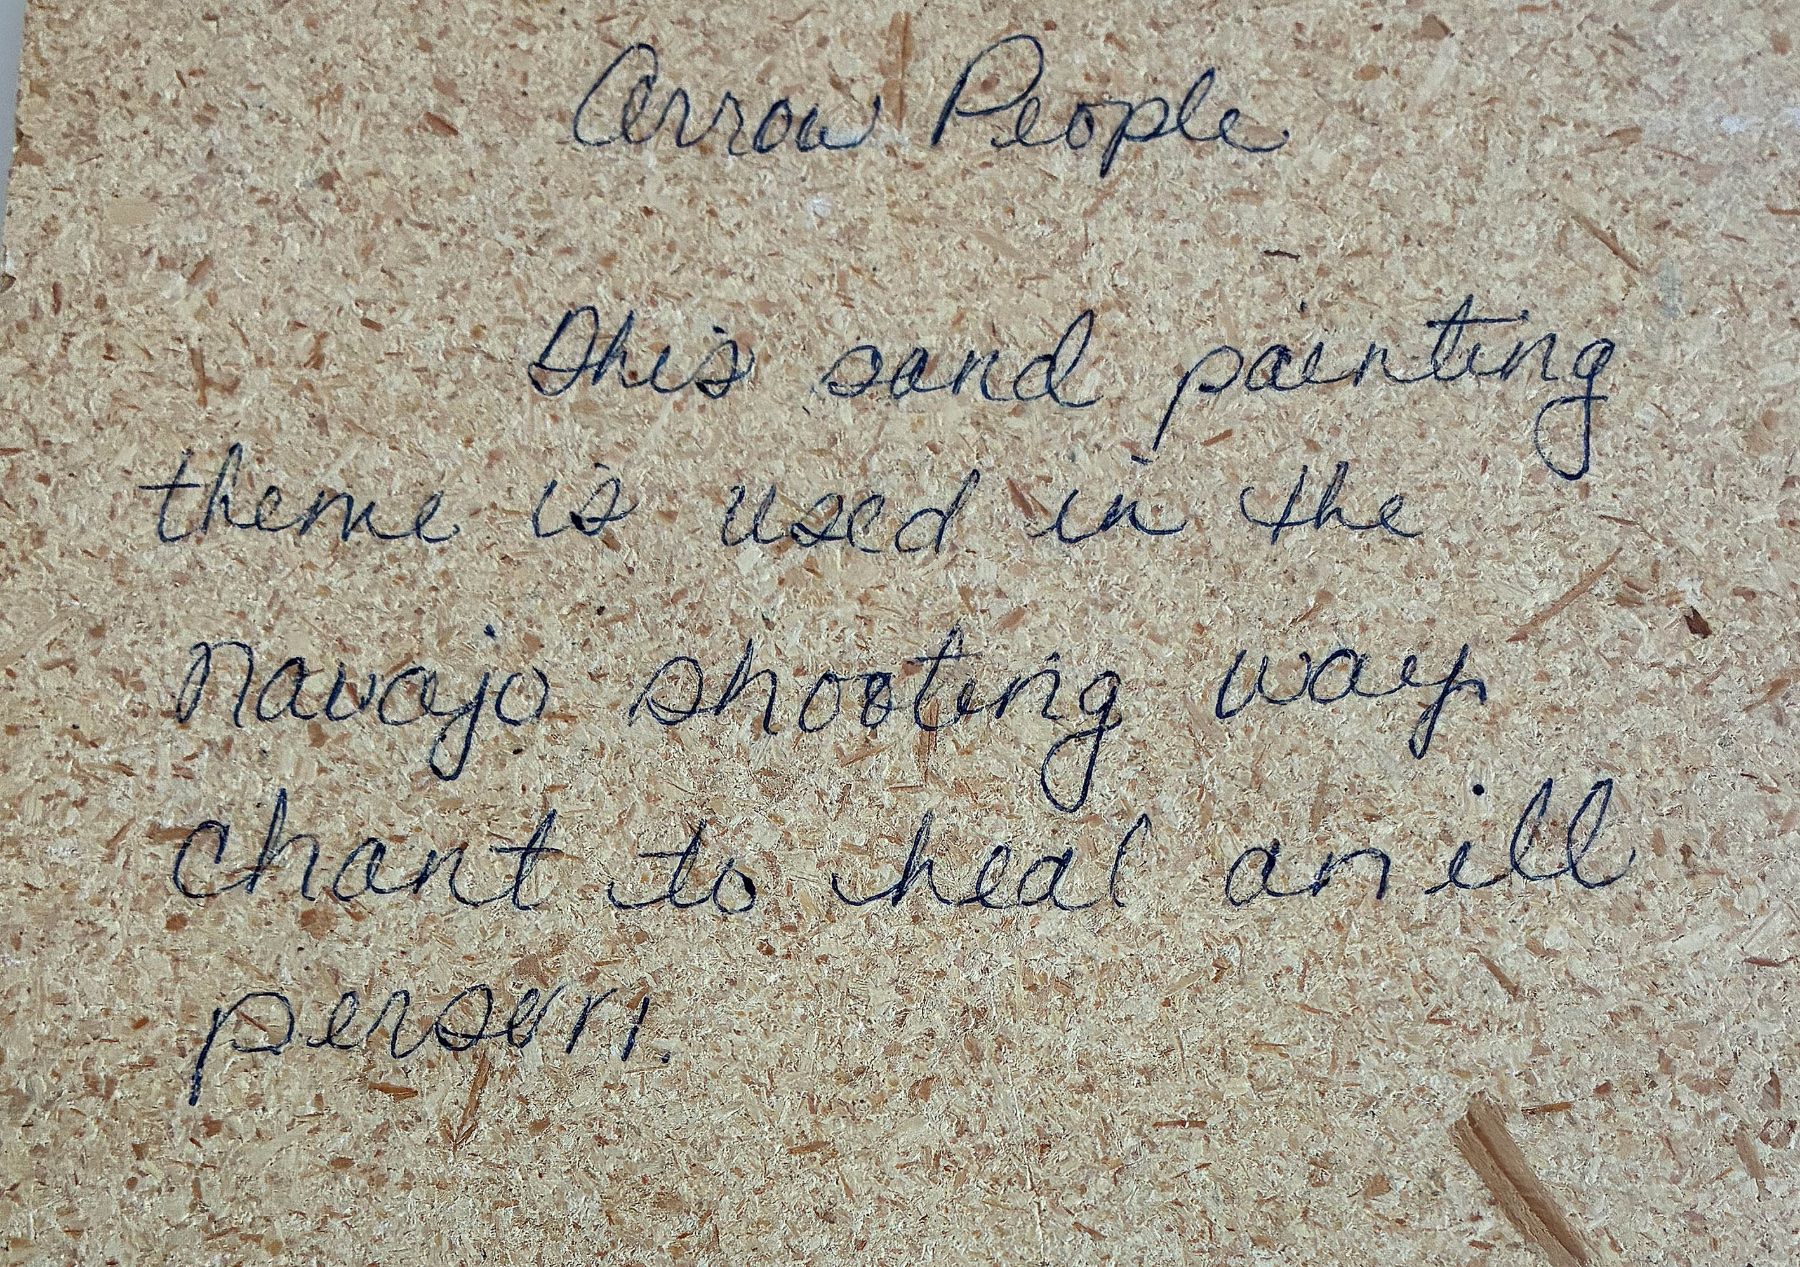 Arrow People
This sand painting
theme is used in the
Navajo shooting way
chant to heal an ill
person.